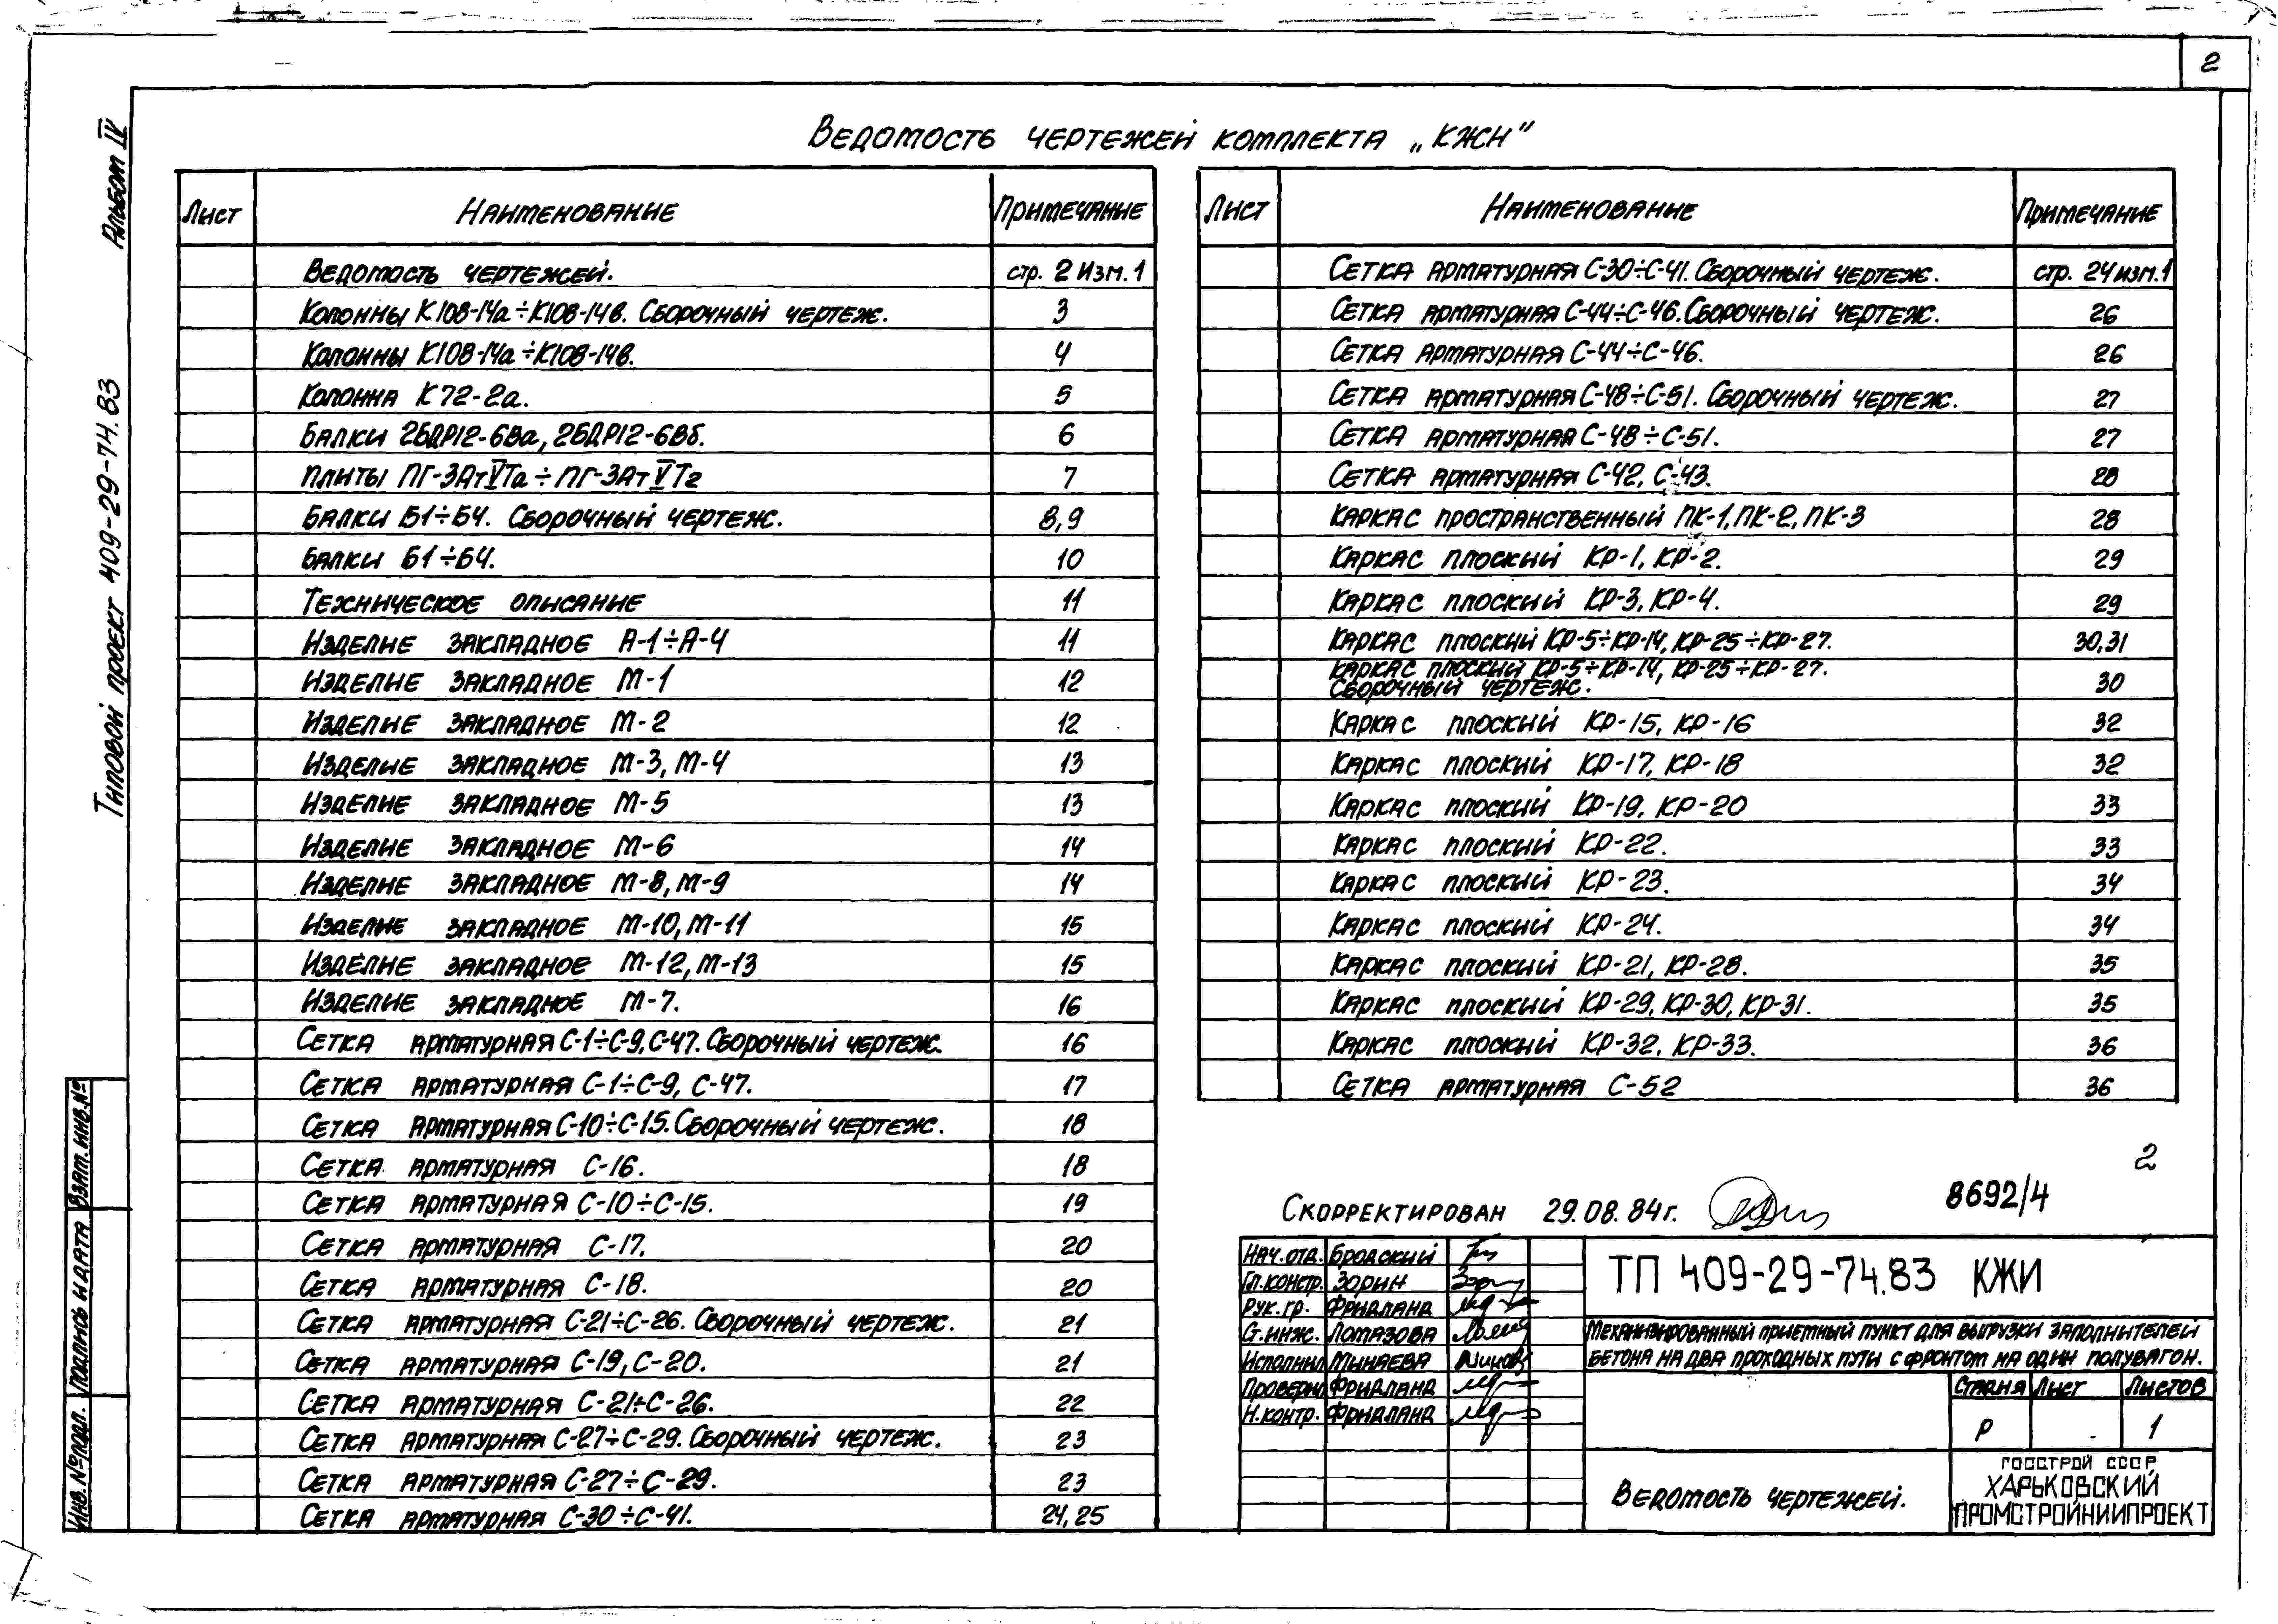 2
Альбом IV
Типовой проект 409-29-74.83
Ведомость чертежей комплекта „КЖИ"
Лист Наименование Примечание
Ведомость чертежей. стр. 2 Изм.1
Колонны К108-14а÷К108-14в. Сборочный чертеж. 3
Колонны К108-14а÷К108-14в. 4
Колонна К72-2а. 5
Балки 2БДР12-6Ва, 2БДР12-6Вб. 6
Плиты ПГ-3АтVТа÷ПГ-3АтVТг 7
Балки Б1÷Б4. Сборочный чертеж. 8,9
Балки Б1÷Б4. 10
Техническое описание 11
Изделие закладное А-1÷А-4 11
Изделие закладное М-1 12
Изделие закладное М-2 12
Изделие закладное М-3, М-4 13
Изделие закладное М-5 13
Изделие закладное М-6 14
Изделие закладное М-8, М-9 14
Изделие закладное М-10, М-11 15
Изделие закладное М-12, М-13 15
Изделие закладное М-7. 16
Сетка арматурная С-1÷С-9, С-47. Сборочный чертеж. 16
Сетка арматурная С-1÷С-9, С-47. 17
Сетка арматурная С-10÷С-15. Сборочный чертеж. 18
Сетка арматурная С-16. 18
Сетка арматурная С-10÷С-15. 19
Сетка арматурная С-17. 20
Сетка арматурная С-18. 20
Сетка арматурная С-21÷С-26. Сборочный чертеж. 21
Сетка арматурная С-19, С-20. 21
Сетка арматурная С-21÷С-26. 22
Сетка арматурная С-27÷С-29. Сборочный чертеж. 23
Сетка арматурная С-27÷С-29. 23
Сетка арматурная С-30÷С-41. 24, 25
Лист Наименование Примечание
Сетка арматурная С-30÷С-41. Сборочный чертеж. стр. 24 изм.1
Сетка арматурная С-44÷С-46. Сборочный чертеж. 26
Сетка арматурная С-44÷С-46. 26
Сетка арматурная С-48÷С-51. Сборочный чертеж. 27
Сетка арматурная С-48÷С-51. 27
Сетка арматурная С-42, С-43. 28
Каркас пространственный ПК-1, ПК-2, ПК-3 28
Каркас плоский КР-1, КР-2. 29
Каркас плоский КР-3, КР-4. 29
Каркас плоский КР-5÷КР-14, КР-25÷КР-27. 30,31
Каркас плоский КР-5÷КР-14, КР-25÷КР-27.
Сборочный чертеж. 30
Каркас плоский КР-15, КР-16 32
Каркас плоский КР-17, КР-18 32
Каркас плоский КР-19, КР-20 33
Каркас плоский КР-22. 33
Каркас плоский КР-23. 34
Каркас плоский КР-24. 34
Каркас плоский КР-21, КР-28. 35
Каркас плоский КР-29, КР-30, КР-31. 35
Каркас плоский КР-32, КР-33. 36
Сетка арматурная С-52 36
2
Скорректирован 29.08.84г. 8692/4
Нач.отд. Бродский
Гл.констр. Зорин
Рук.гр. Фридланд
Ст.инж. Ломазова
Исполнил Минаева
Проверил Фридланд
Н.контр. Фридланд
ТП 409-29-74.83 КЖИ
Механизированный приемный пункт для выгрузки заполнителей
бетона на два проходных пути с фронтом на один полувагон.
Стадия Лист Листов
Р 1
Ведомость чертежей.
Госстрой СССР
Харьковский
Промстройниипроект
Взам. инв.№
Подпись и дата
Инв. № подл.